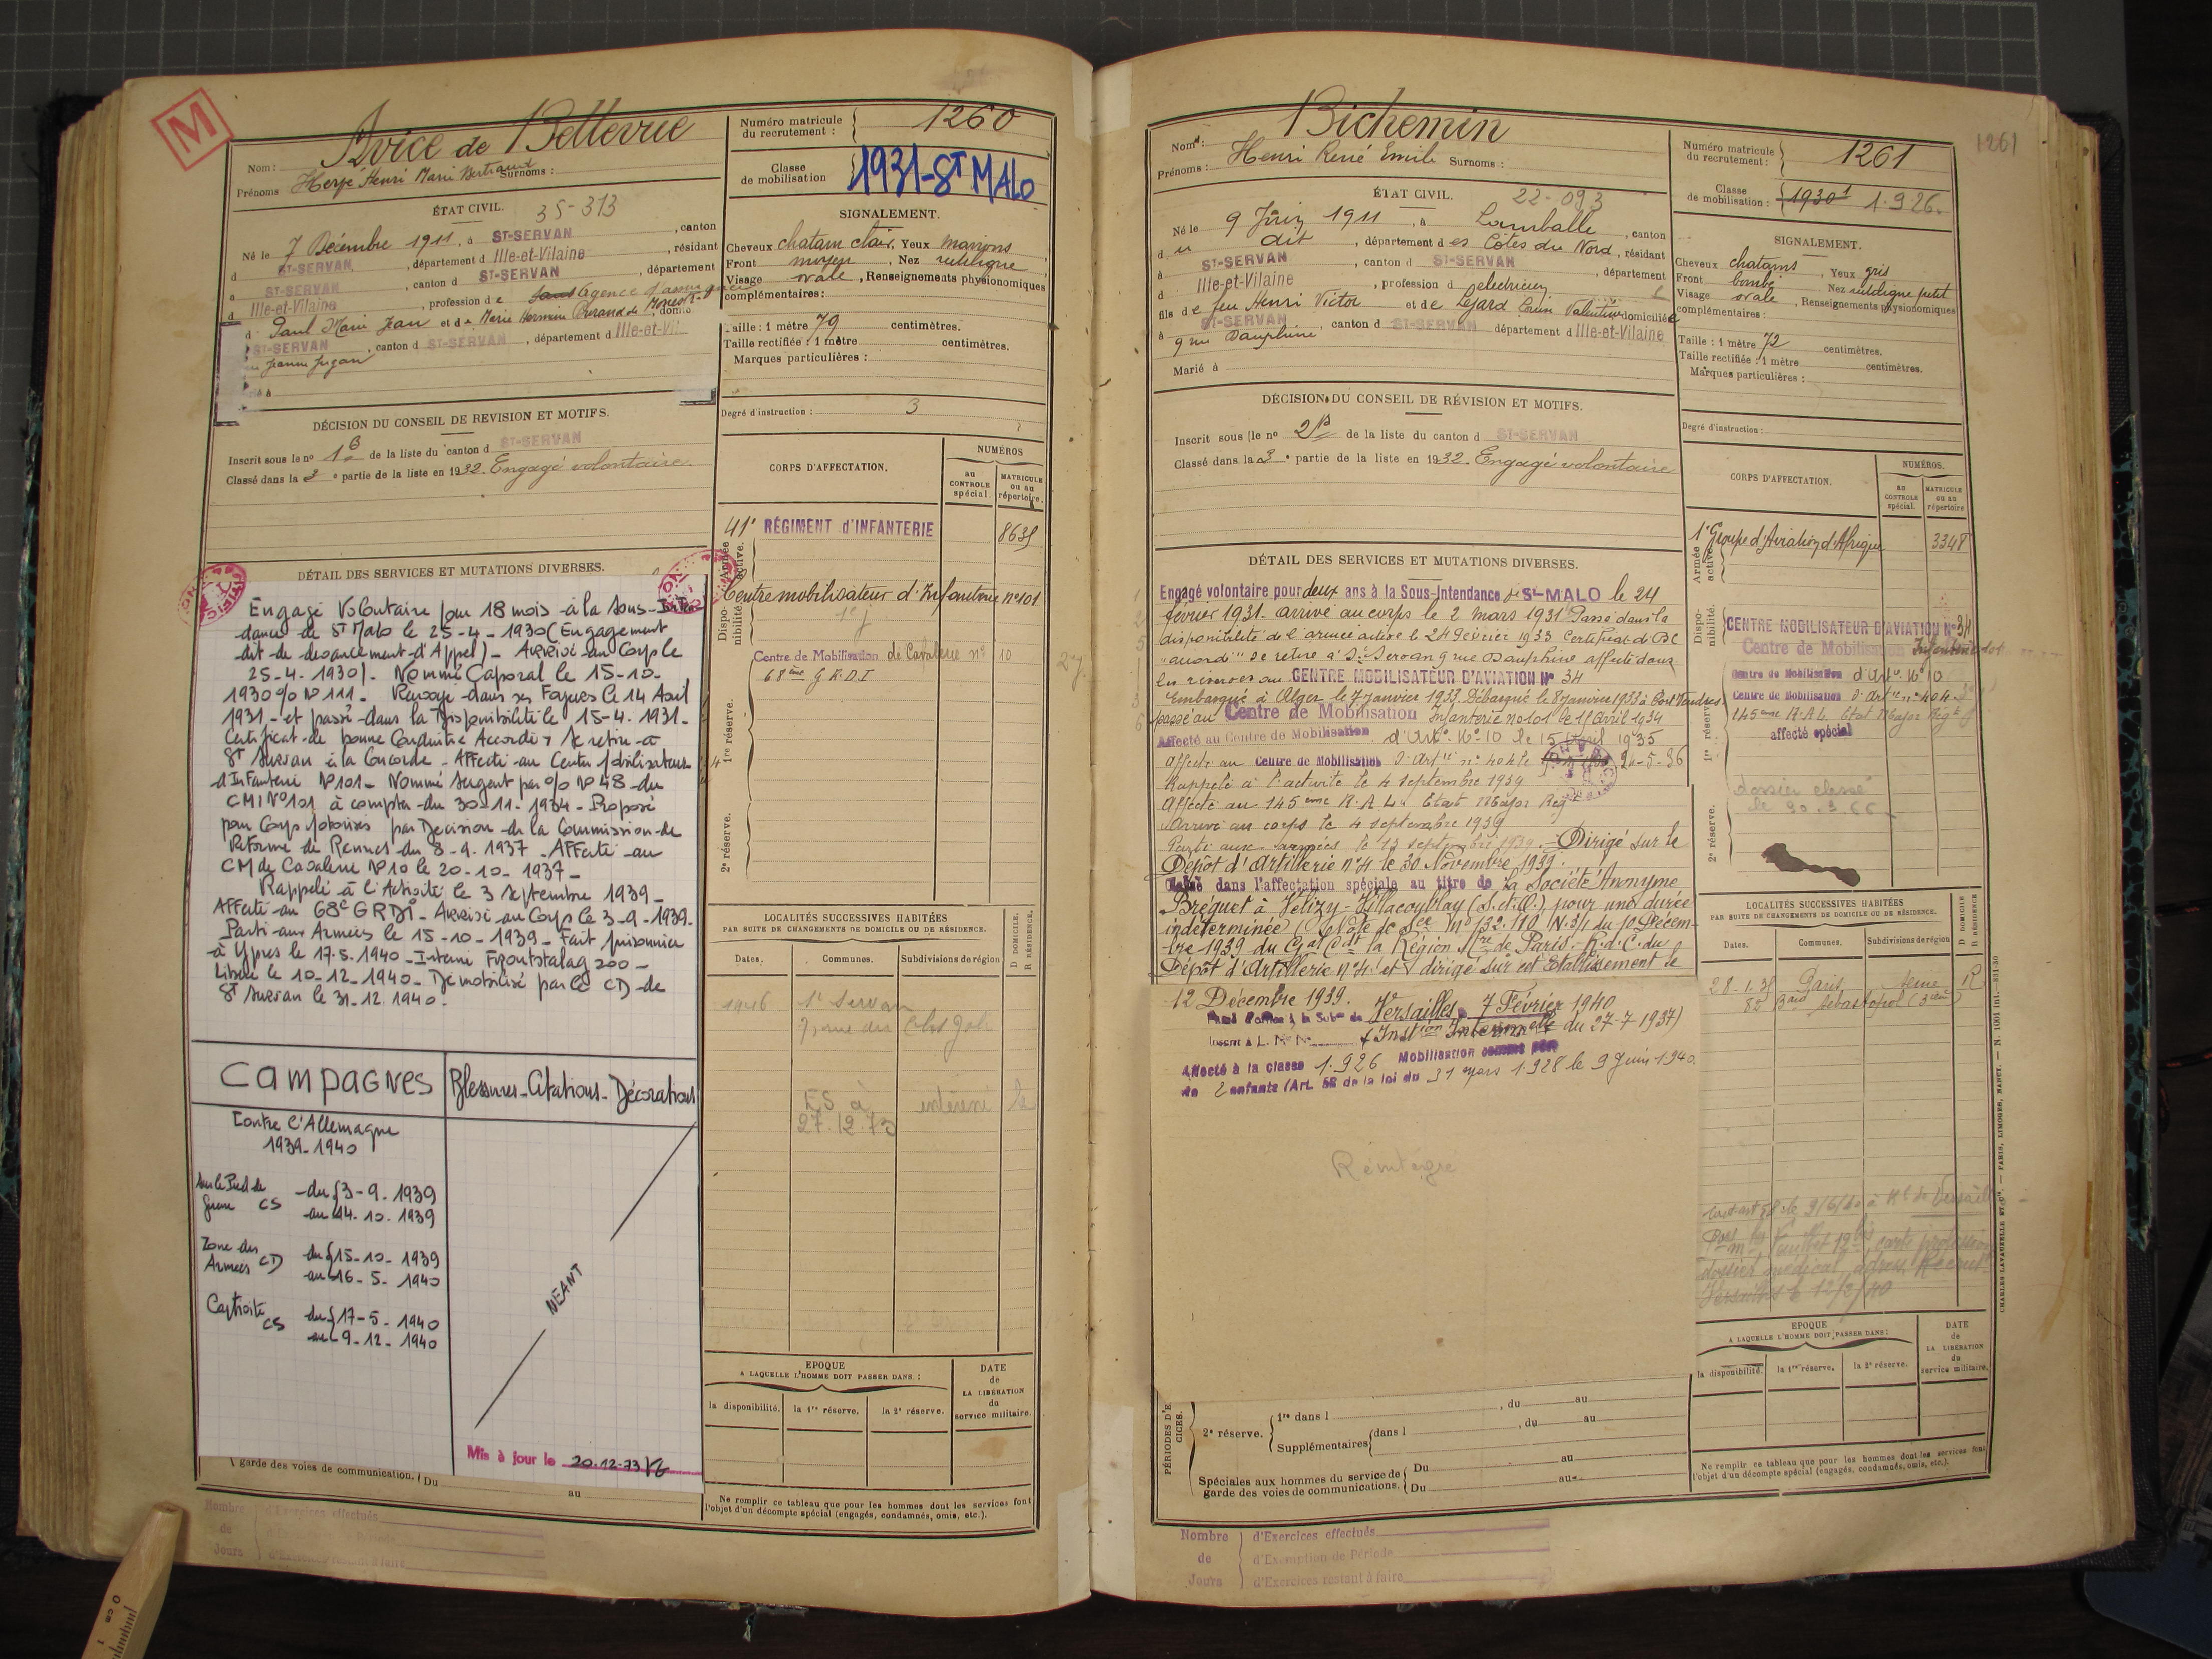 M
Avice de Bellevue
Nom :
Prénoms Hervé Henri Marie Bertrand Surnoms :
ÉTAT CIVIL. 35-313
Né le 7 Décembre 1911, à ST-SERVAN, canton
d ST-SERVAN, département d Ille-et-Vilaine, résidant
à ST-SERVAN, canton d ST-SERVAN, département
d Ille-et-Vilaine, profession d e sans Agence d'assurances
d Paul Marie Jean et de Marie Durand de domi
ST-SERVAN, canton d ST-SERVAN, département d Ille-et-Vi
Jeanne Jugan
DÉCISION DU CONSEIL DE REVISION ET MOTIFS.
Inscrit sous le nº 1 B de la liste du canton d ST-SERVAN
Classé dans la 3 e partie de la liste en 1932. Engagé volontaire.
DÉTAIL DES SERVICES ET MUTATIONS DIVERSES.
Engagé Volontaire pour 18 mois à la Sous-Inten
dance de St Malo le 25-4-1930 (Engagement
dit de devancement d'Appel) - Arrivé au Corps le
25-4-1930). Nommé Caporal le 15-10-
1930 % Nº 111 - Renvoyé dans ses Foyers le 14 Avril
1931 - et passé dans la Disponibilité le 15-4-1931 -
Certificat de bonne Conduite Accordé, se retire à
St Servan à la Concorde - Affecté au Centre Mobilisateur
d'Infanterie Nº 101 - Nommé Sergent par % Nº 48 du
CMI Nº 101 à compter du 30-11-1934 - Proposé
pour Corps Motorisés par Décision de la Commission de
Réforme de Rennes du 8-9-1937 - Affecté au
CM de Cavalerie Nº 10 le 20-10-1937 -
Rappelé à l'Activité le 3 septembre 1939 -
Affecté au 68e GRDI - Arrivé au Corps le 3-9-1939 -
Parti aux Armées le 15-10-1939 - Fait prisonnier
à Ypres le 17-5-1940 - Interné Frontstalag 200 -
Libéré le 10-12-1940 - Démobilisé par le CD de
St Servan le 31-12-1940.
CAMPAGNES
Blessures - Citations - Décorations
Contre l'Allemagne
1939-1940
Sur le Pied de Guerre CS - du 3-9-1939
au 14-10-1939
Zone des Armées CD du 15-10-1939
au 16-5-1940
Captivité CS du 17-5-1940
au 9-12-1940
NÉANT
Mis à jour le 20-12-73
garde des voies de communication. Du
au
Nombre de Jours
d'Exercices effectués
d'Exercices restant à faire
Numéro matricule
du recrutement : 1260
Classe
de mobilisation 1931-ST MALO
SIGNALEMENT.
Cheveux chatain clair, Yeux marrons
Front moyen, Nez rectiligne
Visage ovale, Renseignements physionomiques
complémentaires :
Taille : 1 mètre 79 centimètres.
Taille rectifiée : 1 mètre centimètres.
Marques particulières :
Degré d'instruction : 3
CORPS D'AFFECTATION.
NUMÉROS
au CONTROLE spécial.
MATRICULE ou au répertoire.
Année active.
41e RÉGIMENT d'INFANTERIE 8635
Disponibilité.
Centre mobilisateur d'Infanterie nº 101
1re réserve.
Centre de Mobilisation de Cavalerie nº 10
68ème G.R.D.I
2e réserve.
LOCALITÉS SUCCESSIVES HABITÉES
PAR SUITE DE CHANGEMENTS DE DOMICILE OU DE RÉSIDENCE.
Dates. Communes. Subdivisions de région
D DOMICILE. R RÉSIDENCE.
St Servan
7 rue des
ES à
27.12.73
EPOQUE
A LAQUELLE L'HOMME DOIT PASSER DANS :
la disponibilité. la 1re réserve. la 2e réserve.
DATE
de
LA LIBÉRATION
du
service militaire.
Ne remplir ce tableau que pour les hommes dont les services font
l'objet d'un décompte spécial (engagés, condamnés, omis, etc.).
Bichemin
1261
Nom :
Prénoms : Henri René Emile Surnoms :
ÉTAT CIVIL. 22-093
Né le 9 Juin 1911, à Lamballe, canton
d u dit, département d es Côtes du Nord, résidant
à ST-SERVAN, canton d ST-SERVAN, département
d Ille-et-Vilaine, profession d electricien
fils de feu Henri Victor et de Valentine domiciliée
à ST-SERVAN, canton d ST-SERVAN département d Ille-et-Vilaine
9 rue Dauphine
Marié à
DÉCISION DU CONSEIL DE RÉVISION ET MOTIFS.
Inscrit sous le nº 2 B de la liste du canton d ST-SERVAN
Classé dans la 3 e partie de la liste en 1932. Engagé volontaire
DÉTAIL DES SERVICES ET MUTATIONS DIVERSES.
Engagé volontaire pour deux ans à la Sous-Intendance de St-MALO le 24
février 1931. arrivé au corps le 2 mars 1931 Passé dans la
disponibilité de l'armée active le 24 février 1933 Certificat de BC
"accordé" se retire à St Servan 9 rue Dauphine affecté dans
les réserves au CENTRE MOBILISATEUR D'AVIATION Nº 34
Embarqué à Alger le 7 janvier 1933. Débarqué le 8 janvier 1933 à Port Vendres.
passé au Centre de Mobilisation Infanterie nº 101 le 11 avril 1934
Affecté au Centre de Mobilisation d'Artie Nº 10 le 15 Avril 1935
Affecté au Centre de Mobilisation d'Artie nº 404 le 24-5-36
Rappelé à l'activité le 4 septembre 1939
Affecté au 145ème R.A.L. Etat Major Regt
Arrivé au corps le 4 septembre 1939
Parti aux armées le 13 septembre 1939. Dirigé sur le
Dépôt d'Artillerie nº 4 le 30 Novembre 1939.
Classé dans l'affectation spéciale au titre de la Société Anonyme
Bréguet à Vélizy-Villacoublay (S.&.O.) pour une durée
indéterminée (Note de Sce nº 132.110/N.3/1 du 10 Décem-
bre 1939 du Gal Cdt la Région Mre de Paris. - R.d.C. du
Dépôt d'Artillerie nº 4 et dirigé sur cet Etablissement le
12 Décembre 1939.
Versailles 7 Février 1940
(Instion Interm du 27-7 1937)
Affecté à la classe 1.926 Mobilisation comme père
de 2 enfants (Art. 58 de la loi du 31 mars 1.928 le 9 Juin 1.940.
Réintégré
PÉRIODES D'E
CICES.
2e réserve. 1re dans l , du au
Supplémentaires dans l , du au
Spéciales aux hommes du service de
garde des voies de communications. Du au
Du au
Nombre de Jours
d'Exercices effectués
d'Exemption de Période
d'Exercices restant à faire
Numéro matricule
du recrutement : 1261
Classe
de mobilisation : 1930 1.926.
SIGNALEMENT.
Cheveux chatains, Yeux gris
Front bombé Nez rectiligne petit
Visage ovale, Renseignements physionomiques
complémentaires :
Taille : 1 mètre 72 centimètres.
Taille rectifiée : 1 mètre centimètres.
Marques particulières :
Degré d'instruction :
CORPS D'AFFECTATION.
NUMÉROS.
AU CONTROLE spécial.
MATRICULE OU AU répertoire
Armée active.
1er Groupe d'Aviation d'Afrique 3348
Disponibilité.
CENTRE MOBILISATEUR D'AVIATION Nº 34
Centre de Mobilisation Infanterie 101
1re réserve
Centre de Mobilisation d'Artie Nº 10
Centre de Mobilisation d'Artie nº 404
145ème R.A.L. Etat Major Regt
affecté spécial
2e réserve.
dossier classé
le 30.3.66
LOCALITÉS SUCCESSIVES HABITÉES
PAR SUITE DE CHANGEMENTS DE DOMICILE OU DE RÉSIDENCE.
Dates. Communes. Subdivisions de région
D DOMICILE R RÉSIDENCE
28-1-38 Paris Seine R
82 Bard Sébastopol (3ème)
EPOQUE
A LAQUELLE L'HOMME DOIT PASSER DANS :
la disponibilité. la 1re réserve. la 2e réserve.
DATE
de
LA LIBÉRATION
du
service militaire.
Ne remplir ce tableau que pour les hommes dont les services font
l'objet d'un décompte spécial (engagés, condamnés, omis, etc.).
CHARLES-LAVAUZELLE ET Cie. — PARIS, LIMOGES, NANCY. — N. 1001 int. - 831-30